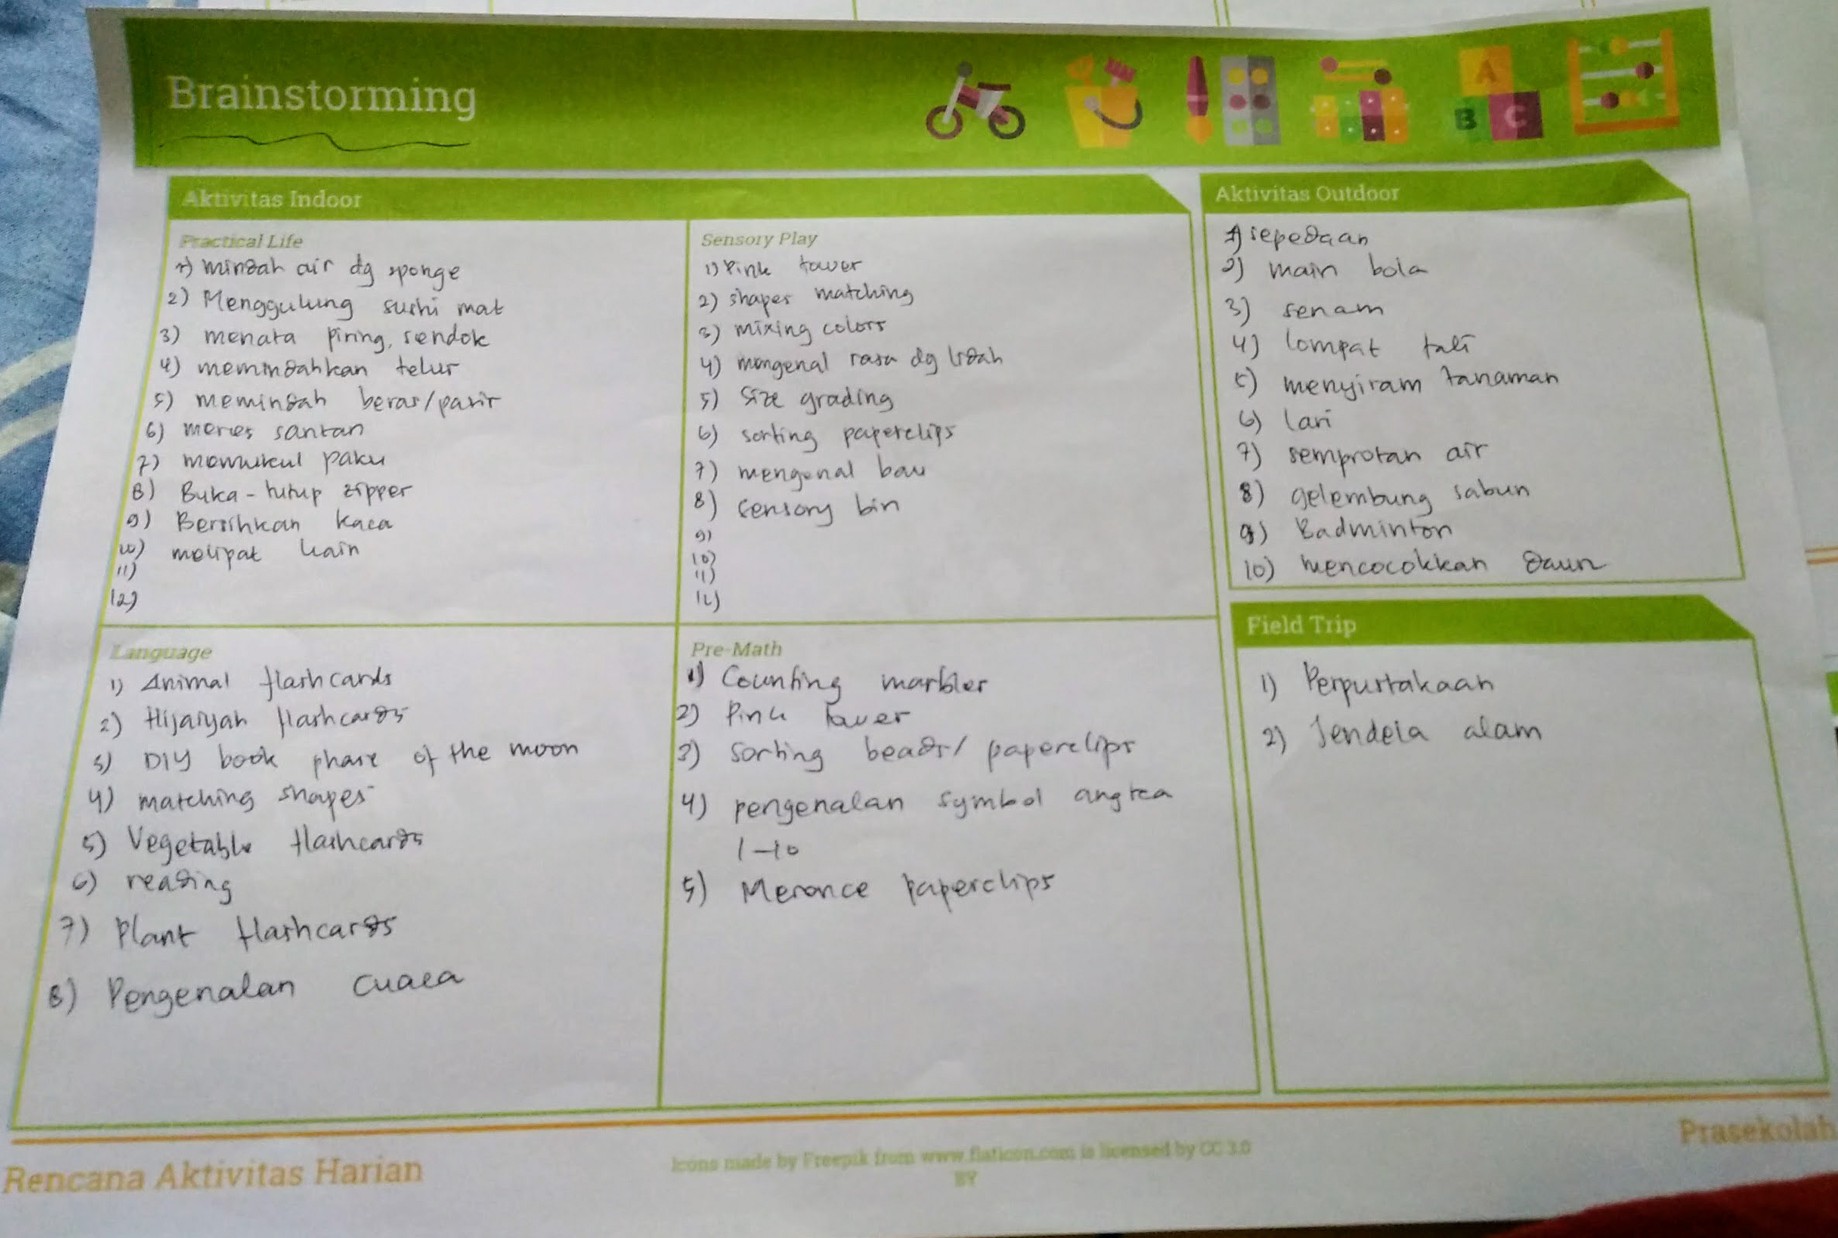 Brainstorming
Aktivitas Indoor
Practical Life
1) mindah air dg sponge
2) Menggulung sushi mat
3) menata piring, sendok
4) memindahkan telur
5) memindah beras/pasir
6) meres santan
7) memukul paku
8) Buka-tutup zipper
9) Bersihkan kaca
10) melipat kain
11)
12)
Sensory Play
1) Pink tower
2) shapes matching
3) mixing colors
4) mengenal rasa dg lidah
5) Size grading
6) sorting paperclips
7) mengenal bau
8) Sensory bin
9)
10)
11)
12)
Language
1) Animal flashcards
2) Hijaiyah flashcards
3) DIY book phase of the moon
4) matching shapes
5) Vegetable flashcards
6) reading
7) Plant flashcards
8) Pengenalan cuaca
Pre-Math
1) Counting marbles
2) Pink tower
3) Sorting beads/ paperclips
4) pengenalan symbol angka
1-10
5) Meronce paperclips
Aktivitas Outdoor
1) sepedaan
2) main bola
3) senam
4) lompat tali
5) menyiram tanaman
6) lari
7) semprotan air
8) gelembung sabun
9) Badminton
10) mencocokkan daun
Field Trip
1) Perpustakaan
2) Jendela alam
Rencana Aktivitas Harian
Icons made by Freepik from www.flaticon.com is licensed by CC 3.0
BY
Prasekolah